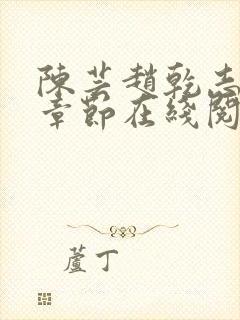 陳芸趙乾志
章節在綫閱
蘆丁